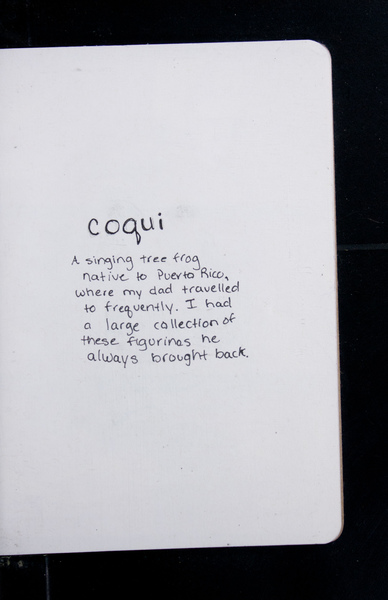 coqui
A singing tree frog
native to Puerto Rico,
where my dad travelled
to frequently. I had
a large collection of
these figurines he
always brought back.